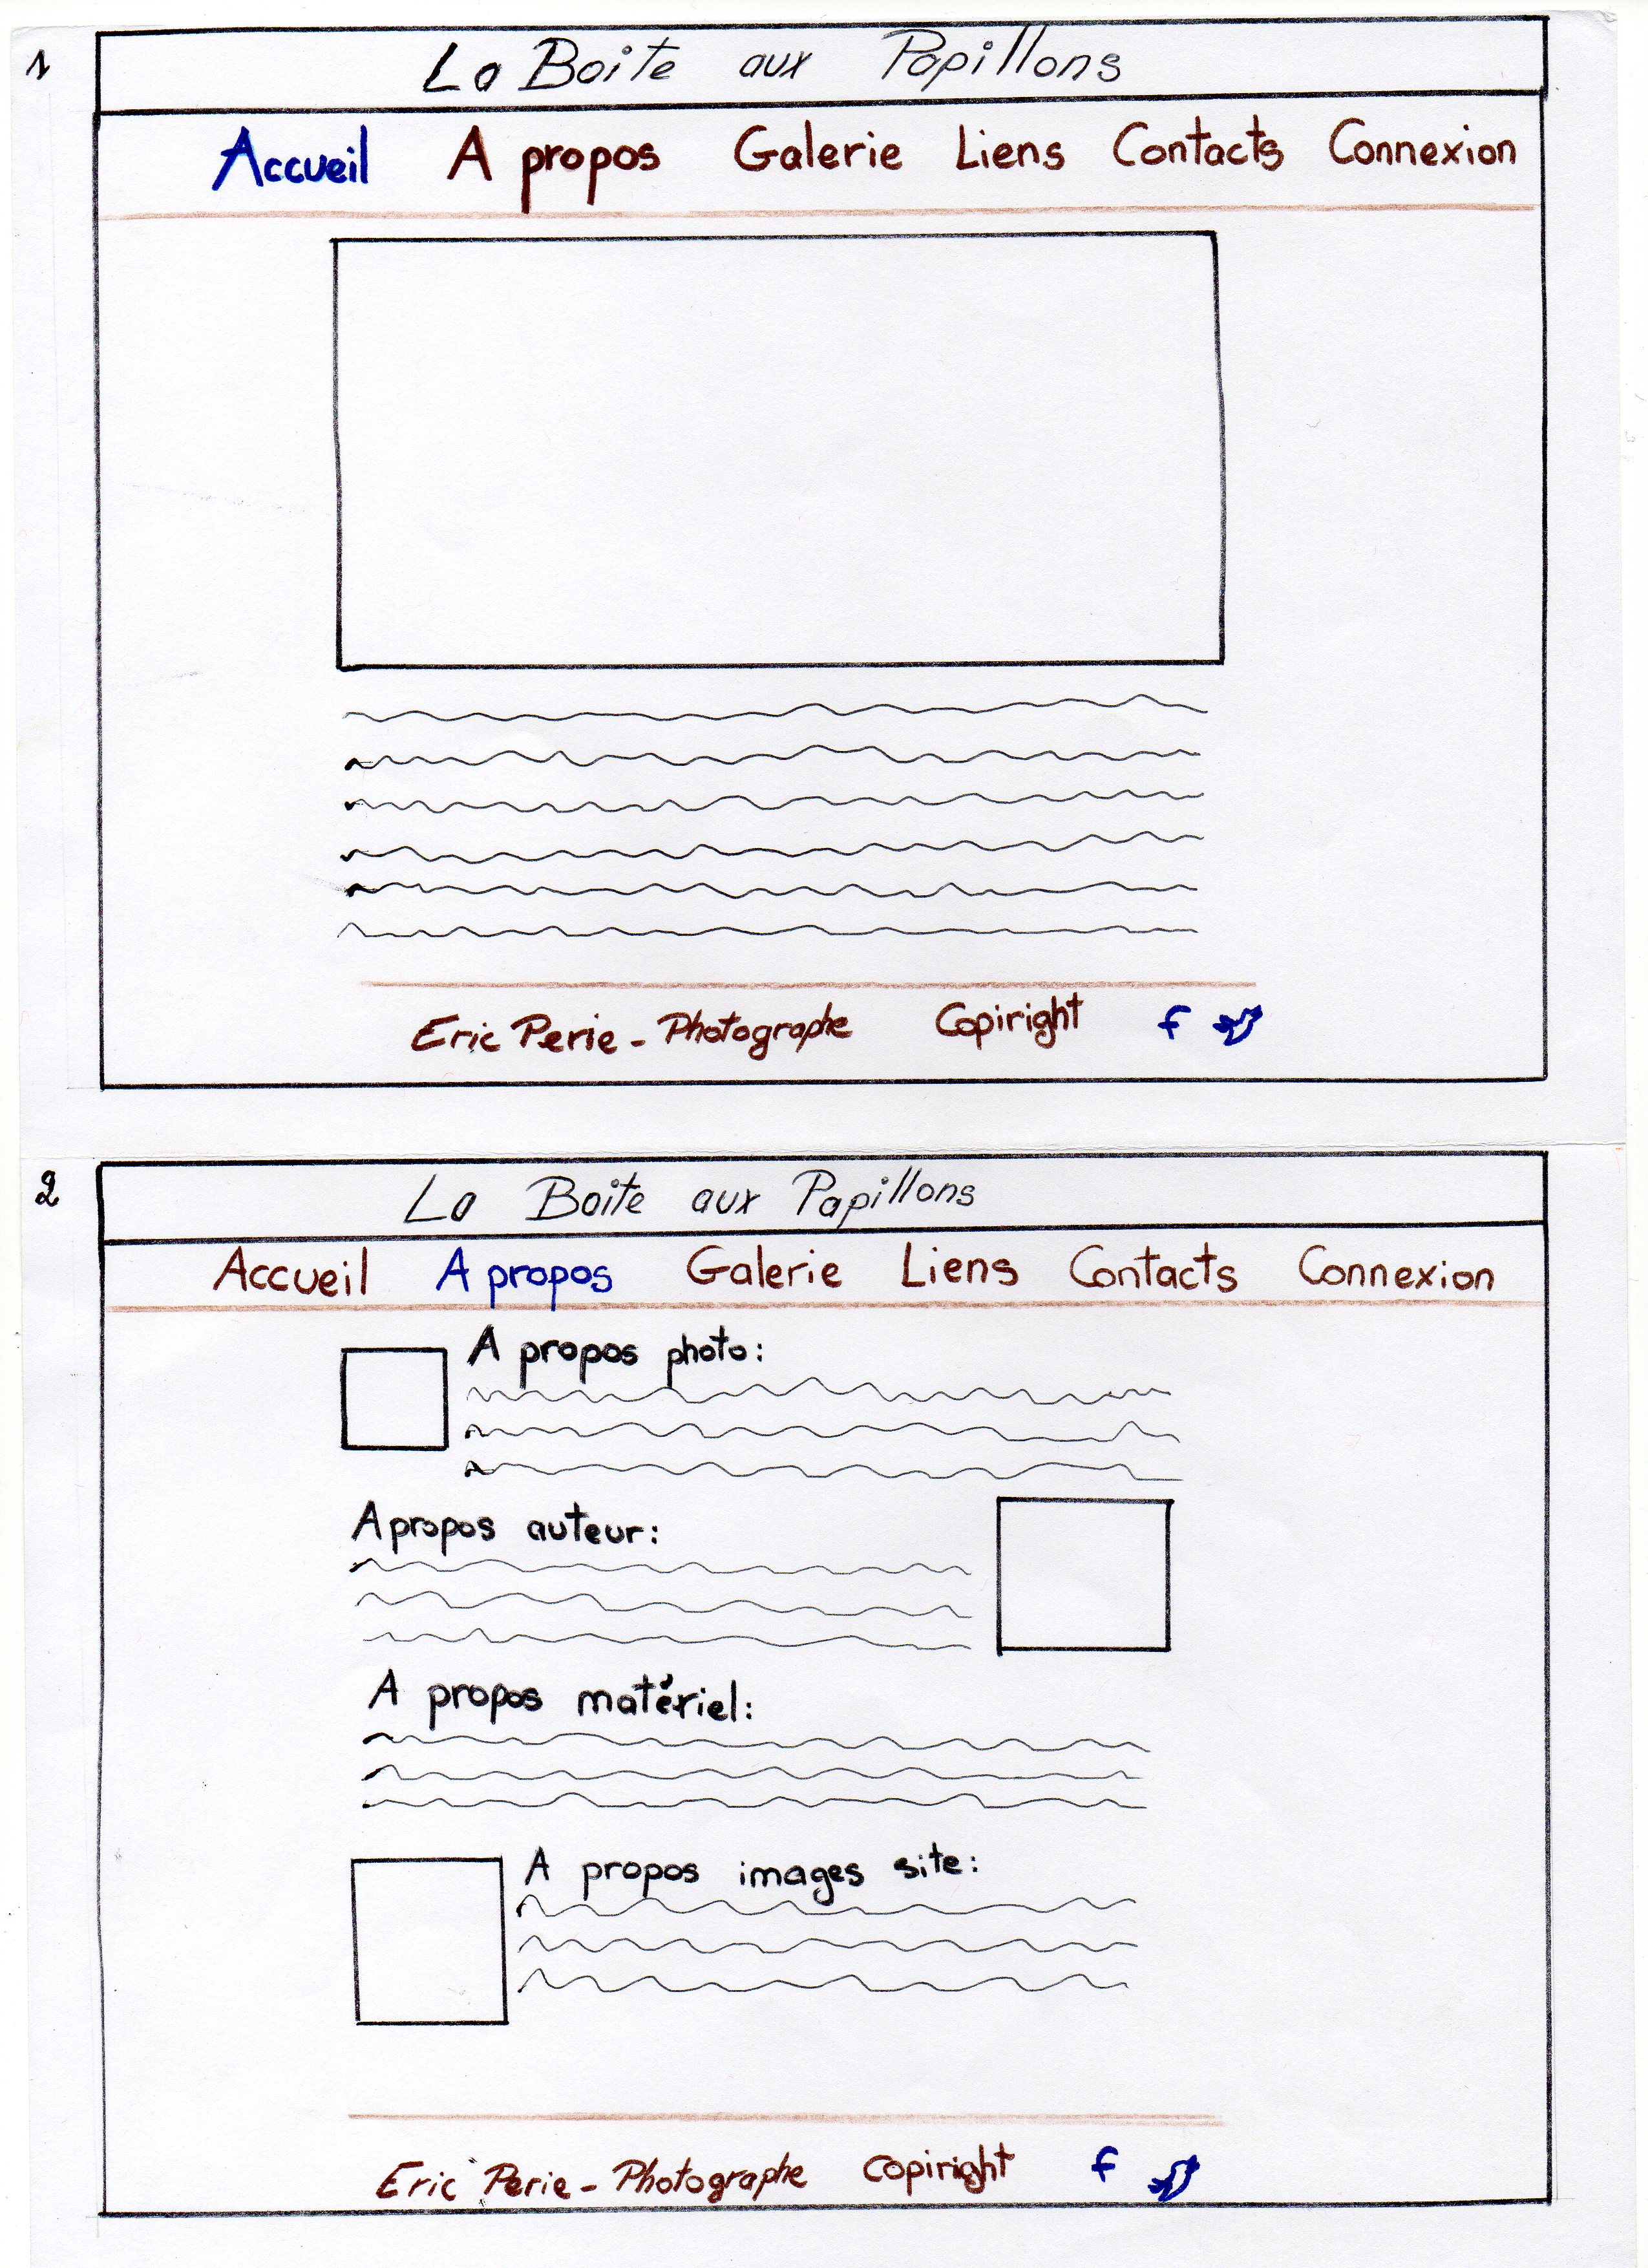 1
La Boite aux Papillons
Accueil A propos Galerie Liens Contacts Connexion
Eric Perie - Photographe Copiright f
2
La Boite aux Papillons
Accueil A propos Galerie Liens Contacts Connexion
A propos photo:
A propos auteur:
A propos matériel:
A propos images site:
Eric Perie - Photographe Copiright f